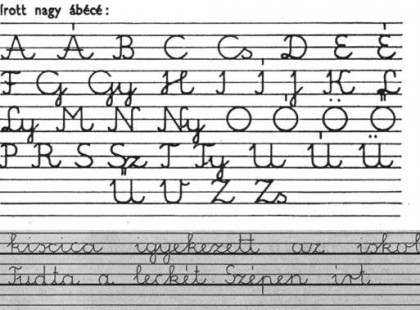 írott nagy ábécé:
A Á B C Cs D E É
F G Gy H I Í J K L
Ly M N Ny O Ó Ö Ő
P R S Sz T Ty U Ú Ü
Ű V Z Zs
kiscica igyekezett az iskol
Tudta a leckét. Szépen írt